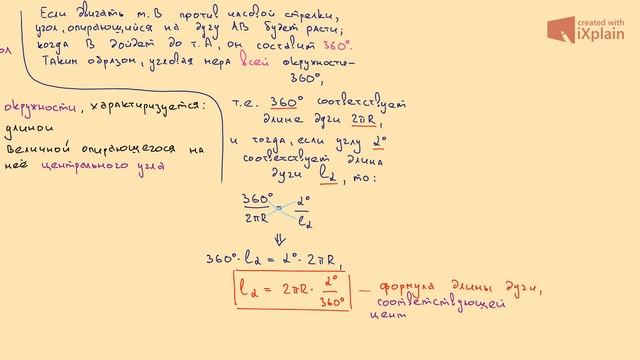 created with
iXplain
Если двигать т. В против часовой стрелки,
угол, опирающийся на дугу АВ будет расти;
когда В дойдет до т. А, он составит 360°.
Таким образом, угловая мера всей окружности-
360°,
ол
окружности, характеризуется:
длиной
величиной опирающегося на
неё центрального угла
т.е. 360° соответствует
длине дуги 2πR,
и тогда, если углу α°
соответствует длина
дуги ℓα, то:
360°/2πR = α°/ℓα
⇓
360°·ℓα = α°·2πR,
ℓα = 2πR · α°/360° — формула длины дуги,
соответствующей
цент